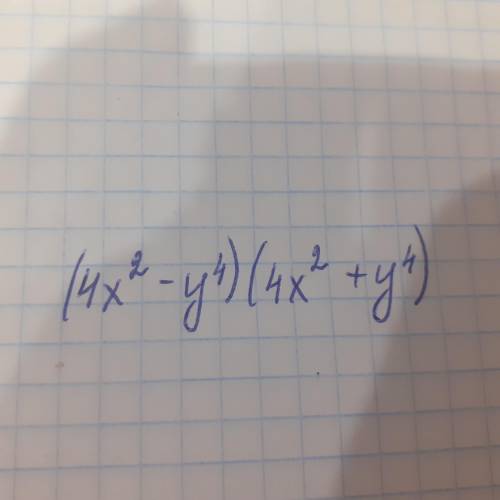 (4x² - y⁴)(4x² + y⁴)